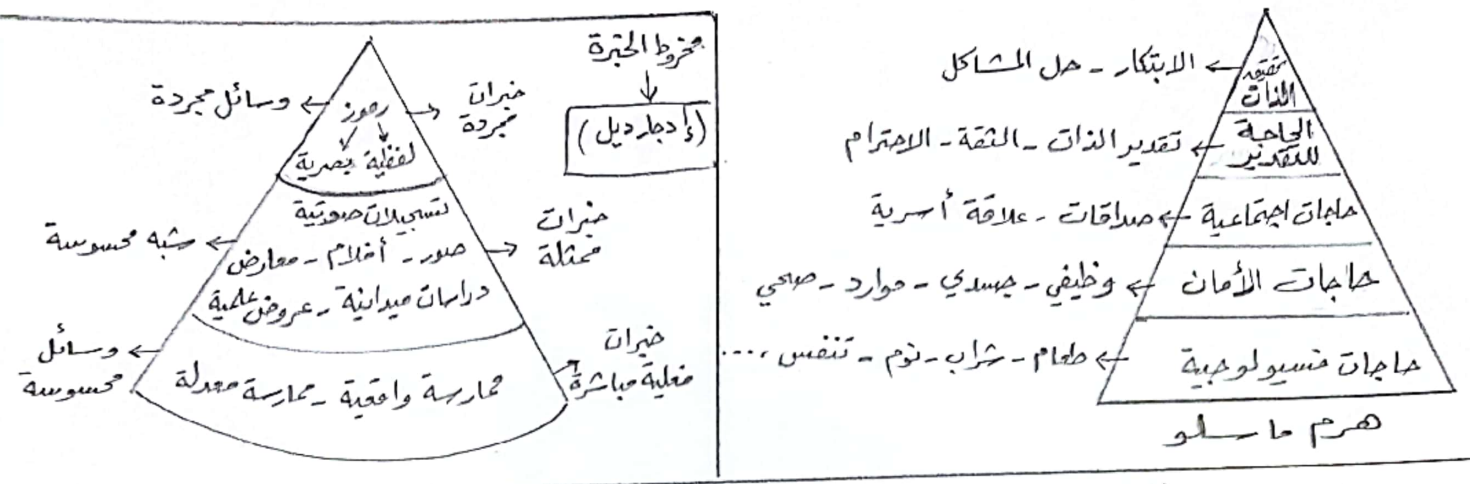 هرم ماسلو
تحقيق الذات
الابتكار - حل المشاكل
الحاجة للتقدير
تقدير الذات - الثقة - الاحترام
حاجات اجتماعية
صداقات - علاقة أسرية
حاجات الأمان
وظيفي - جسدي - موارد - صحي
حاجات فسيولوجية
طعام - شراب - نوم - تنفس ، ...
مخروط الخبرة
(إدجار ديل)
رموز
لفظية بصرية
وسائل مجردة
خبرات
مجردة
تسجيلات صوتية
صور - أفلام - معارض
دراسات ميدانية - عروض علمية
شبه محسوسة
خبرات
ممثلة
ممارسة واقعية - ممارسة معدلة
وسائل
محسوسة
خبرات
فعلية مباشرة